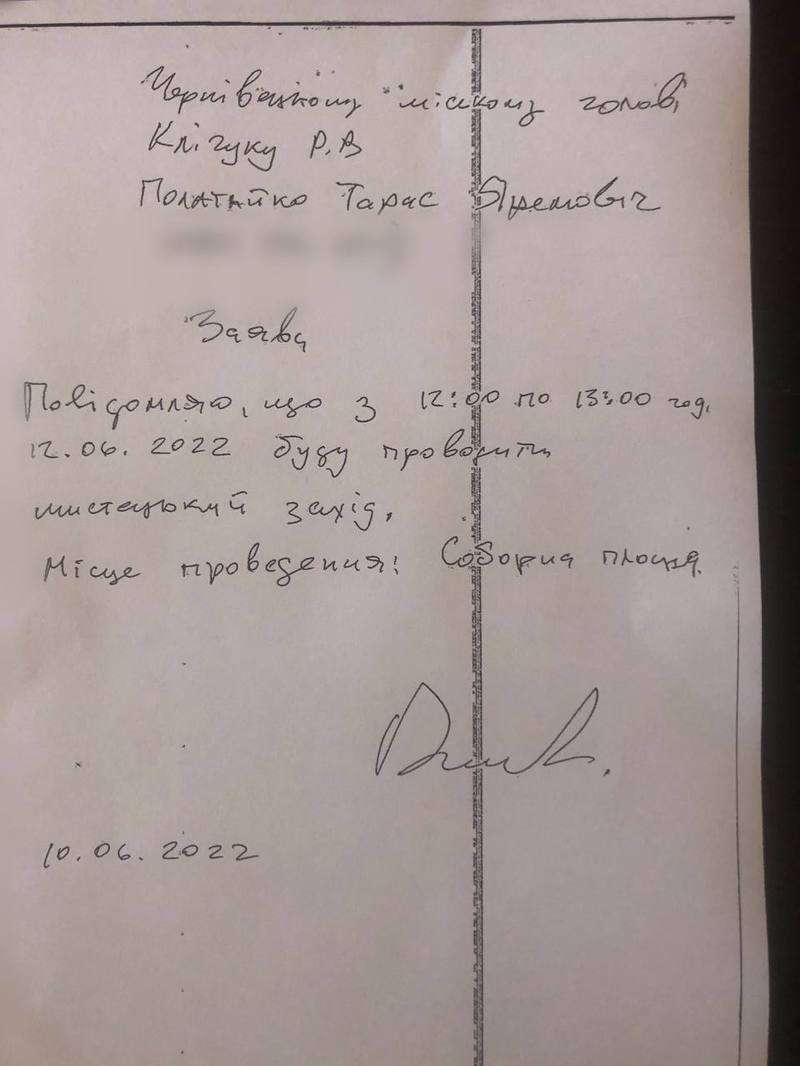 Чернівецькому міському голові
Клічуку Р.В
Полатайко Тарас Яремович
Заява
Повідомляю, що з 12:00 по 13:00 год,
12.06.2022 буду проводити
мистецький захід.
Місце проведення: Соборна площа.
10.06.2022